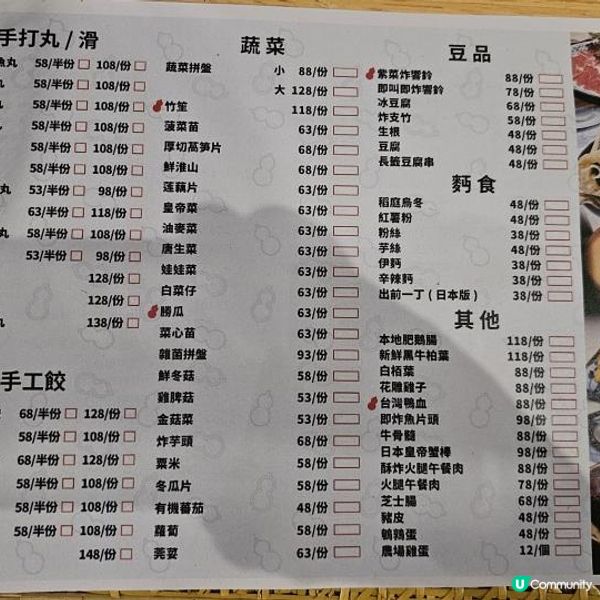 手打丸 / 滑
魚丸 58/半份 108/份
58/半份 108/份
58/半份 108/份
58/半份 108/份
58/半份 108/份
丸 53/半份 98/份
63/半份 118/份
丸 58/半份 108/份
53/半份 98/份
128/份
128/份
丸 138/份
手工餃
68/半份 128/份
58/半份 108/份
68/半份 128/份
58/半份 108/份
58/半份 108/份
58/半份 108/份
148/份
蔬菜
蔬菜拼盤 小 88/份
大 128/份
竹笙 118/份
菠菜苗 63/份
厚切萵筍片 68/份
鮮淮山 68/份
蓮藕片 63/份
皇帝菜 63/份
油麥菜 63/份
唐生菜 63/份
娃娃菜 63/份
白菜仔 63/份
勝瓜 63/份
菜心苗 63/份
雜菌拼盤 93/份
鮮冬菇 58/份
雞脾菇 53/份
金菇菜 53/份
炸芋頭 68/份
粟米 58/份
冬瓜片 58/份
有機蕃茄 48/份
蘿蔔 58/份
莞荽 63/份
豆品
紫菜炸響鈴 88/份
即叫即炸響鈴 78/份
冰豆腐 68/份
炸支竹 58/份
生根 48/份
豆腐 48/份
長籤豆腐串 48/份
麪食
稻庭烏冬 48/份
紅薯粉 48/份
粉絲 38/份
芋絲 48/份
伊麪 38/份
辛辣麪 38/份
出前一丁 ( 日本版 ) 38/份
其他
本地肥鵝腸 118/份
新鮮黑牛柏葉 118/份
白栢葉 88/份
花雕雞子 88/份
台灣鴨血 88/份
即炸魚片頭 98/份
牛骨髓 88/份
日本皇帝蟹棒 98/份
酥炸火腿午餐肉 88/份
火腿午餐肉 78/份
芝士腸 68/份
豬皮 48/份
鵪鶉蛋 48/份
農場雞蛋 12/個
U Community